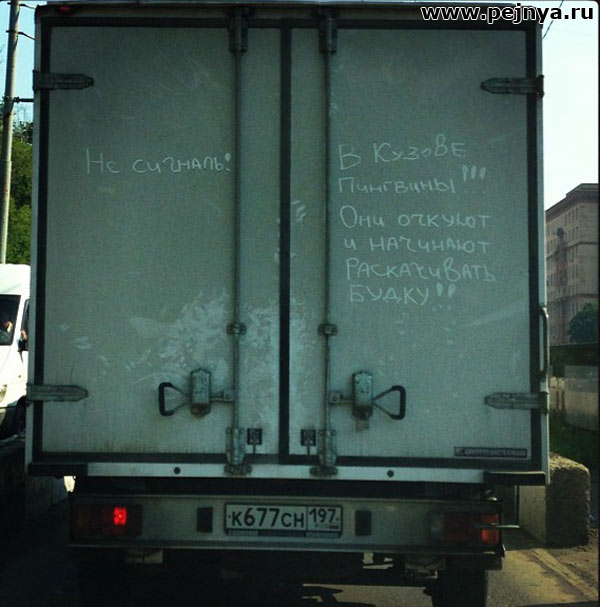 www.pejnya.ru
Не сигналь!
В Кузове
Пингвины!!!
Они очкуют
и начинают
Раскачивать
Будку!!
К677СН 197